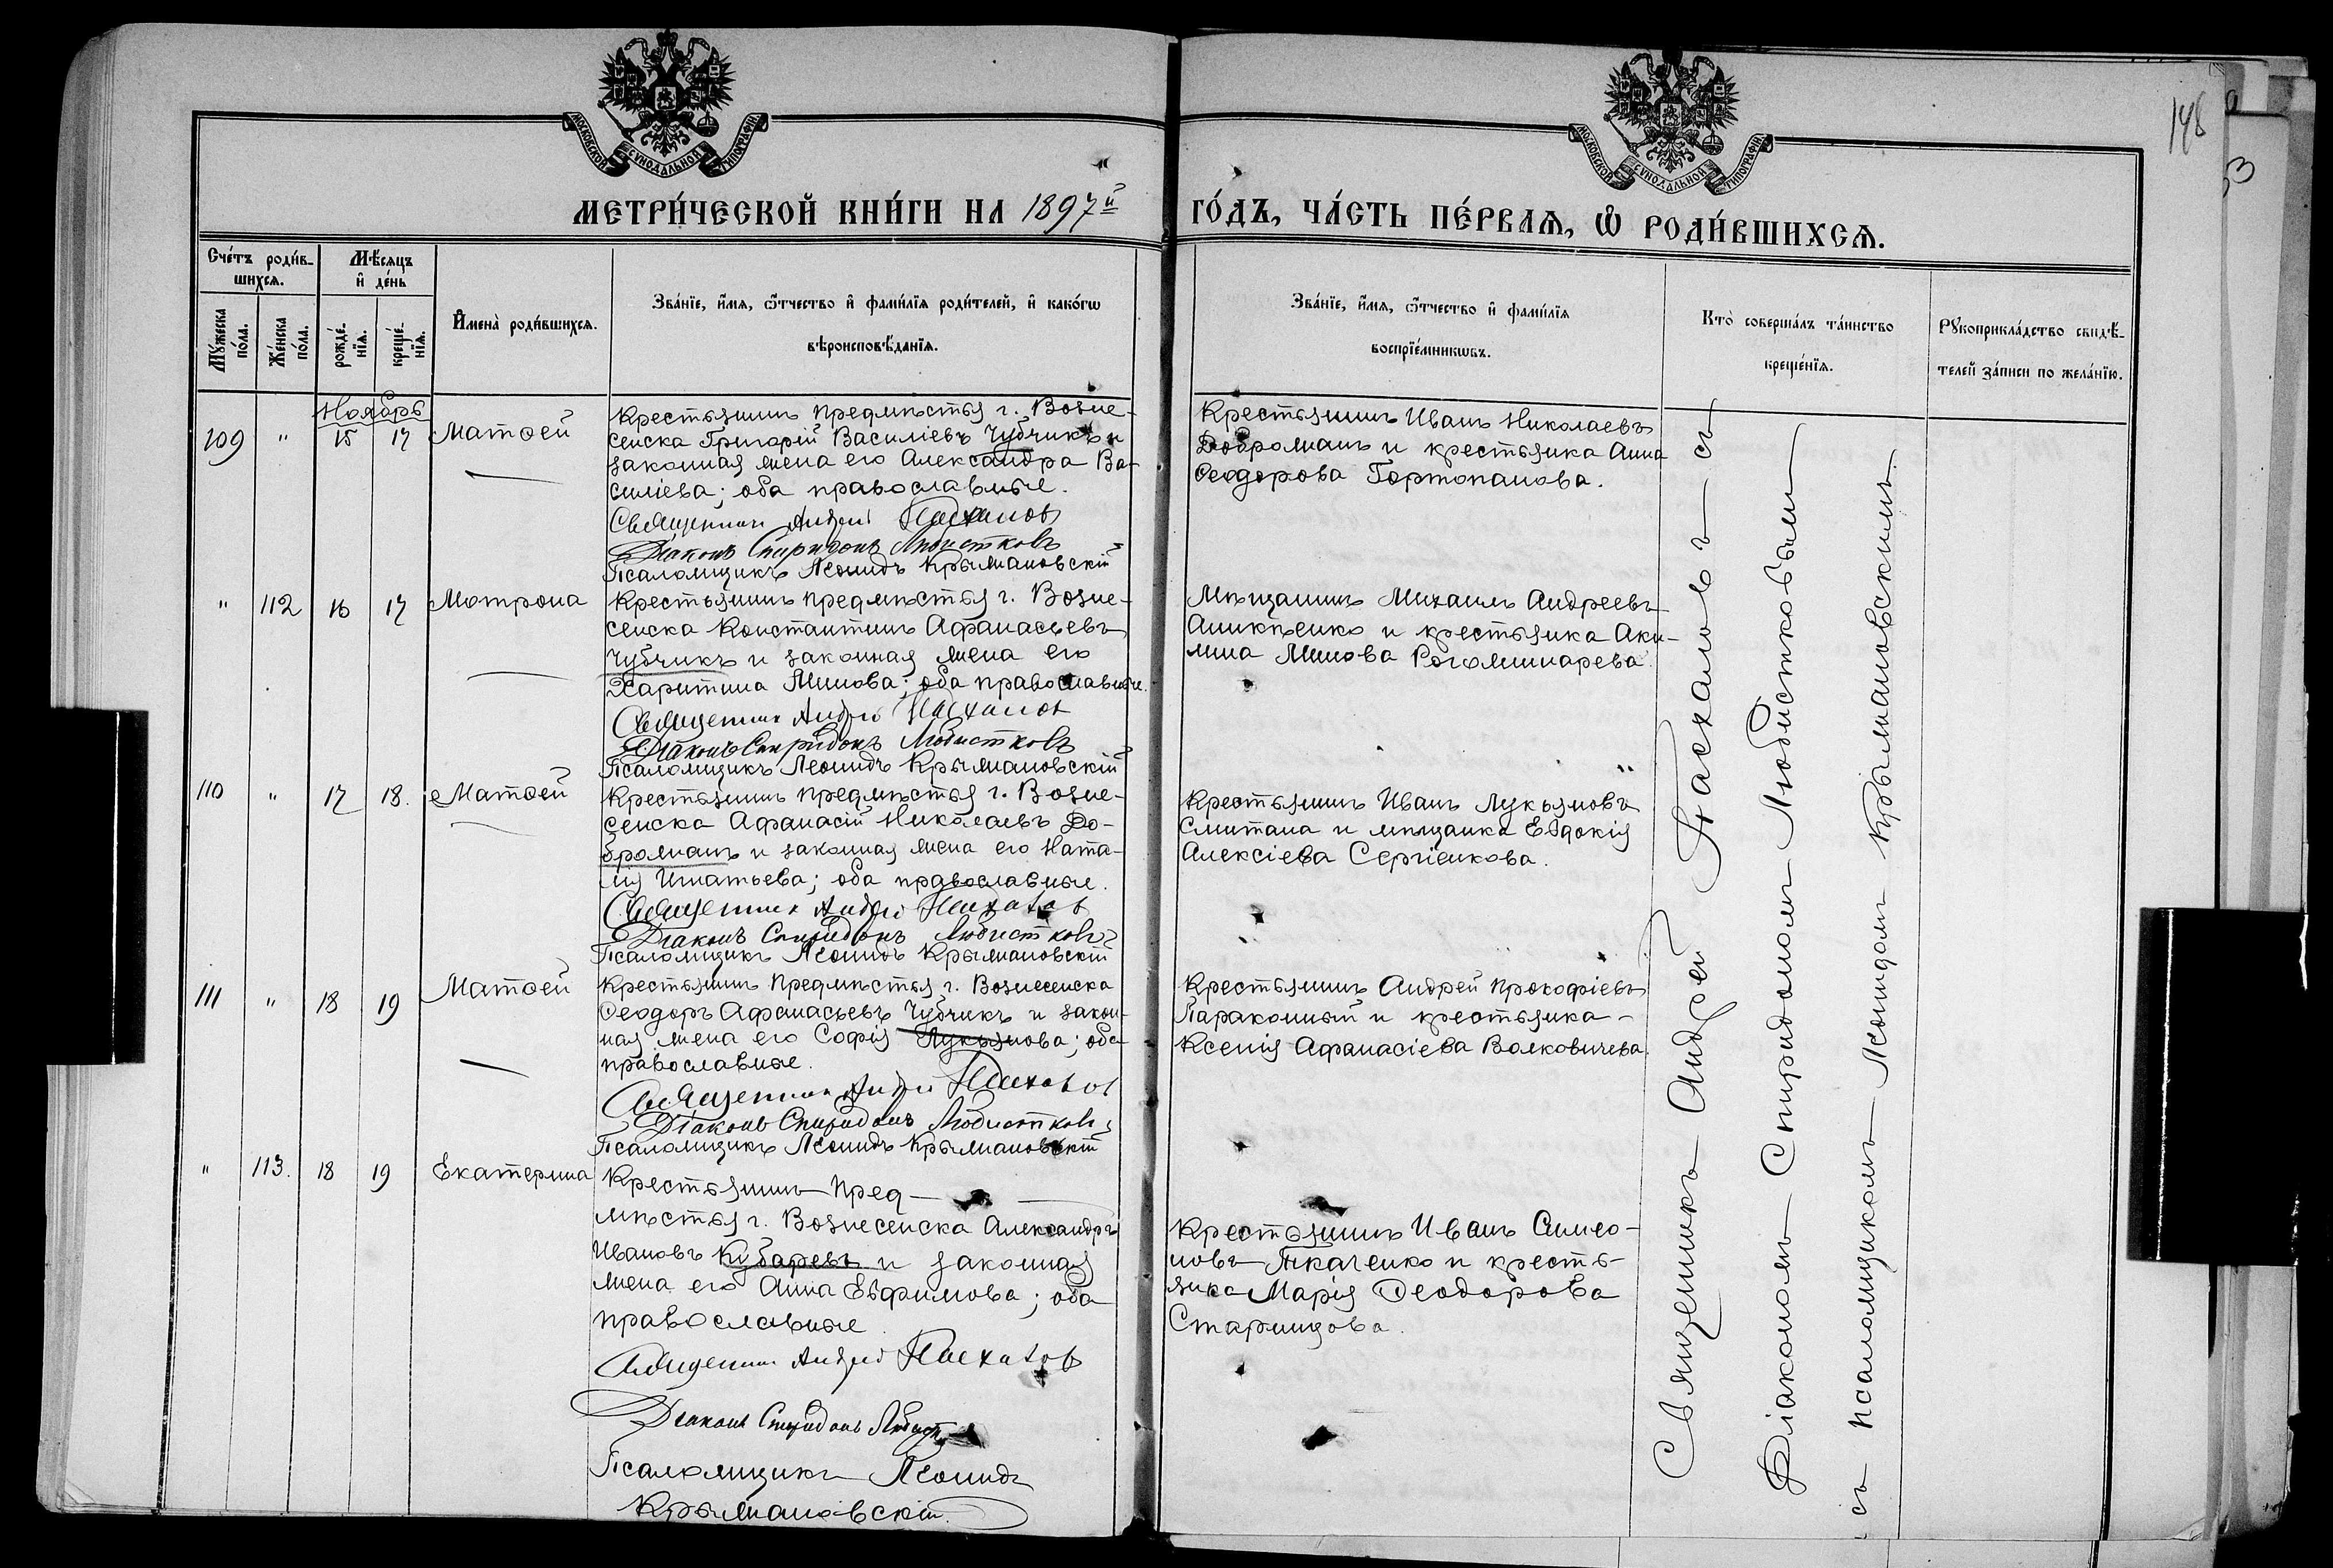 148
МОСКОВСКОЙ СѴНОДАЛЬНОЙ ТИПОГРАФІИ
МОСКОВСКОЙ СѴНОДАЛЬНОЙ ТИПОГРАФІИ
МЕТРИ́ЧЕСКОЙ КНИ́ГИ НА 1897й ГО́ДЪ, ЧА́СТЬ ПЕ́РВАЯ, Ѡ РОДИ́ВШИХСЯ.
Сче́тъ роди́в-
шихся.
Мѣ́сяцъ
и де́нь
Му́жеска
по́ла.
Же́нска
по́ла.
рожде́-
нія.
креще́-
нія.
Имена̀ роди́вшихся.
Зва́ніе, и́мя, ѻ́тчество и фами́лія роди́телей, и како́гѡ
вѣроисповѣ́данія.
Зва́ніе, и́мя, ѻ́тчество и фами́лія
воспріе́мникωвъ.
Кто̀ соверша́лъ та́инство
креще́нія.
Рукоприкла́дство свидѣ́-
телей за́писи по жела́нію.
Ноябрь
109 " 15 17 Матѳей
Крестьянинъ предмѣстья г. Возне-
сенска Григорій Василіевъ Чубчикъ и
законная жена его Александра Ва-
силіева; оба православные.
Священникъ Андрей Пасхаловъ
Діаконъ Спиридонъ Любистковъ
Псаломщикъ Леонидъ Крыжановскій
Крестьянинъ Иванъ Николаевъ
Доброжанъ и крестьянка Анна
Ѳеодорова Гортопанова.
" 112 16 17 Мотрона
Крестьянинъ предмѣстья г. Возне-
сенска Константинъ Афанасьевъ
Чубчикъ и законная жена его
Харитина Минова; оба православные.
Священникъ Андрей Пасхаловъ
Діаконъ Спиридонъ Любистковъ
Псаломщикъ Леонидъ Крыжановскій
Мѣщанинъ Михаилъ Андреевъ
и крестьянка Аки-
лина Минова
110 " 17 18. Матѳей
Крестьянинъ предмѣстья г. Возне-
сенска Афанасій Николаевъ До-
брожанъ и законная жена его Ната-
лія Игнатьева; оба православные.
Священникъ Андрей Пасхаловъ
Діаконъ Спиридонъ Любистковъ
Псаломщикъ Леонидъ Крыжановскій
Крестьянинъ Иванъ Лукьяновъ
Смитана и мѣщанка Евдокія
Алексіева Сергіенкова.
111 " 18 19 Матѳей
Крестьянинъ предмѣстья г. Вознесенска
Ѳеодоръ Афанасьевъ Чубчикъ и закон-
ная жена его Софія Лукьянова; оба
православные.
Священникъ Андрей Пасхаловъ
Діаконъ Спиридонъ Любистковъ
Псаломщикъ Леонидъ Крыжановскій
Крестьянинъ Андрей Прокофіевъ
Параконный и крестьянка -
Ксенія Афанасіева Волковичева.
" 113. 18 19 Екатерина
Крестьянинъ пред-
мѣстья г. Вознесенска Александръ
Ивановъ Кубаревъ и законная
жена его Анна Евфимова; оба
православные.
Священникъ Андрей Пасхаловъ
Діаконъ Спиридонъ Любистк
Псаломщикъ Леонидъ
Крыжановскій.
Крестьянинъ Иванъ Симео-
новъ Ткаченко и кресть-
янка Марія Ѳеодорова
Старинцова.
Священникъ Андрей Пасхаловъ съ
Діакономъ Спиридономъ Любистковымъ
и съ псаломщикомъ Леонидомъ Крыжановскимъ.